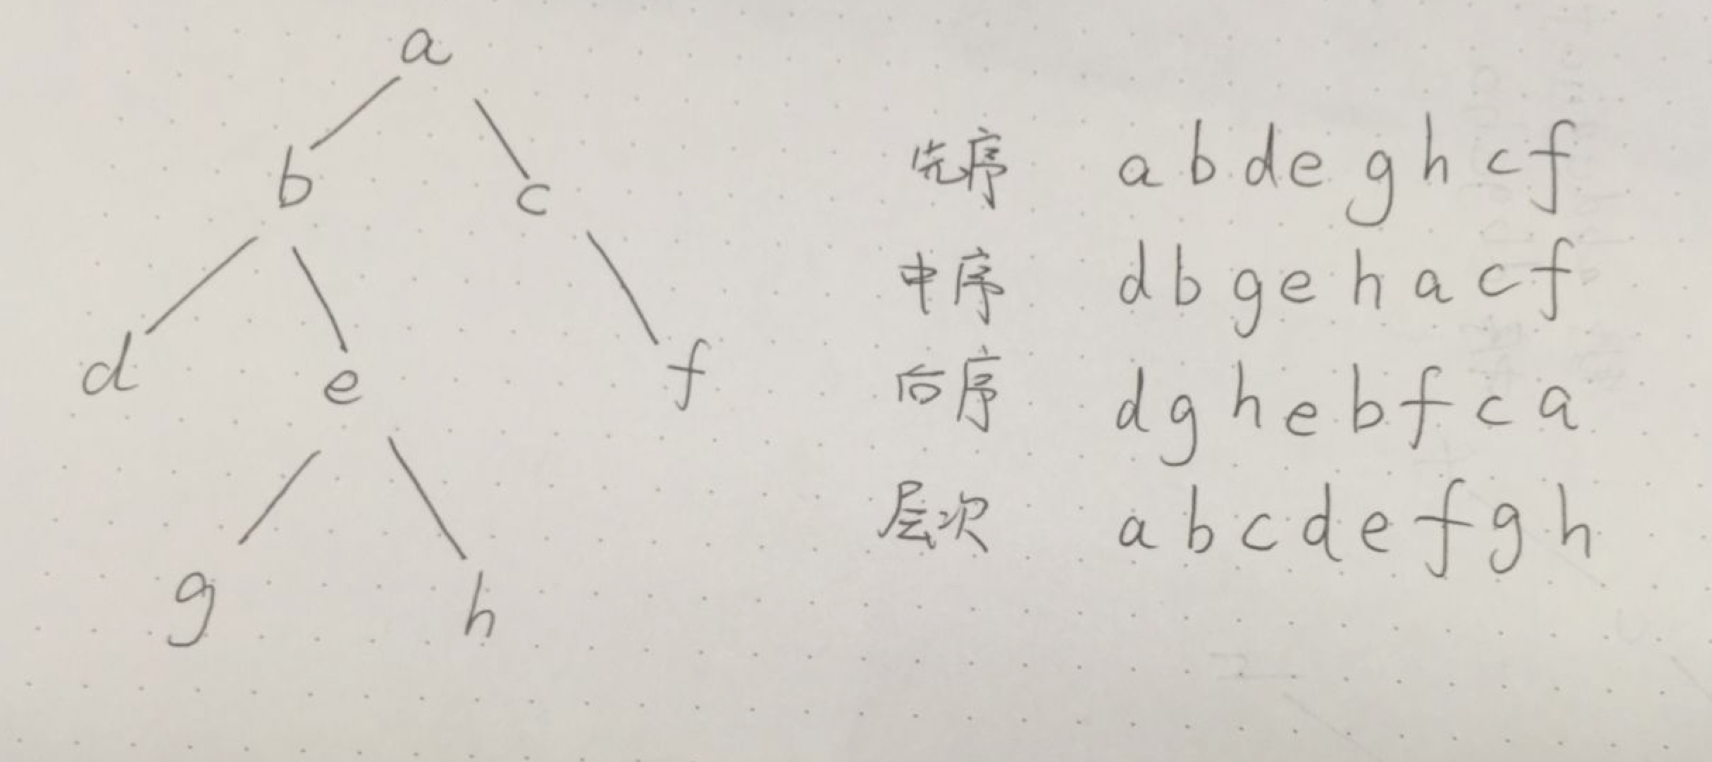 a
b c
d e f
g h
先序 a b d e g h c f
中序 d b g e h a c f
后序 d g h e b f c a
层次 a b c d e f g h